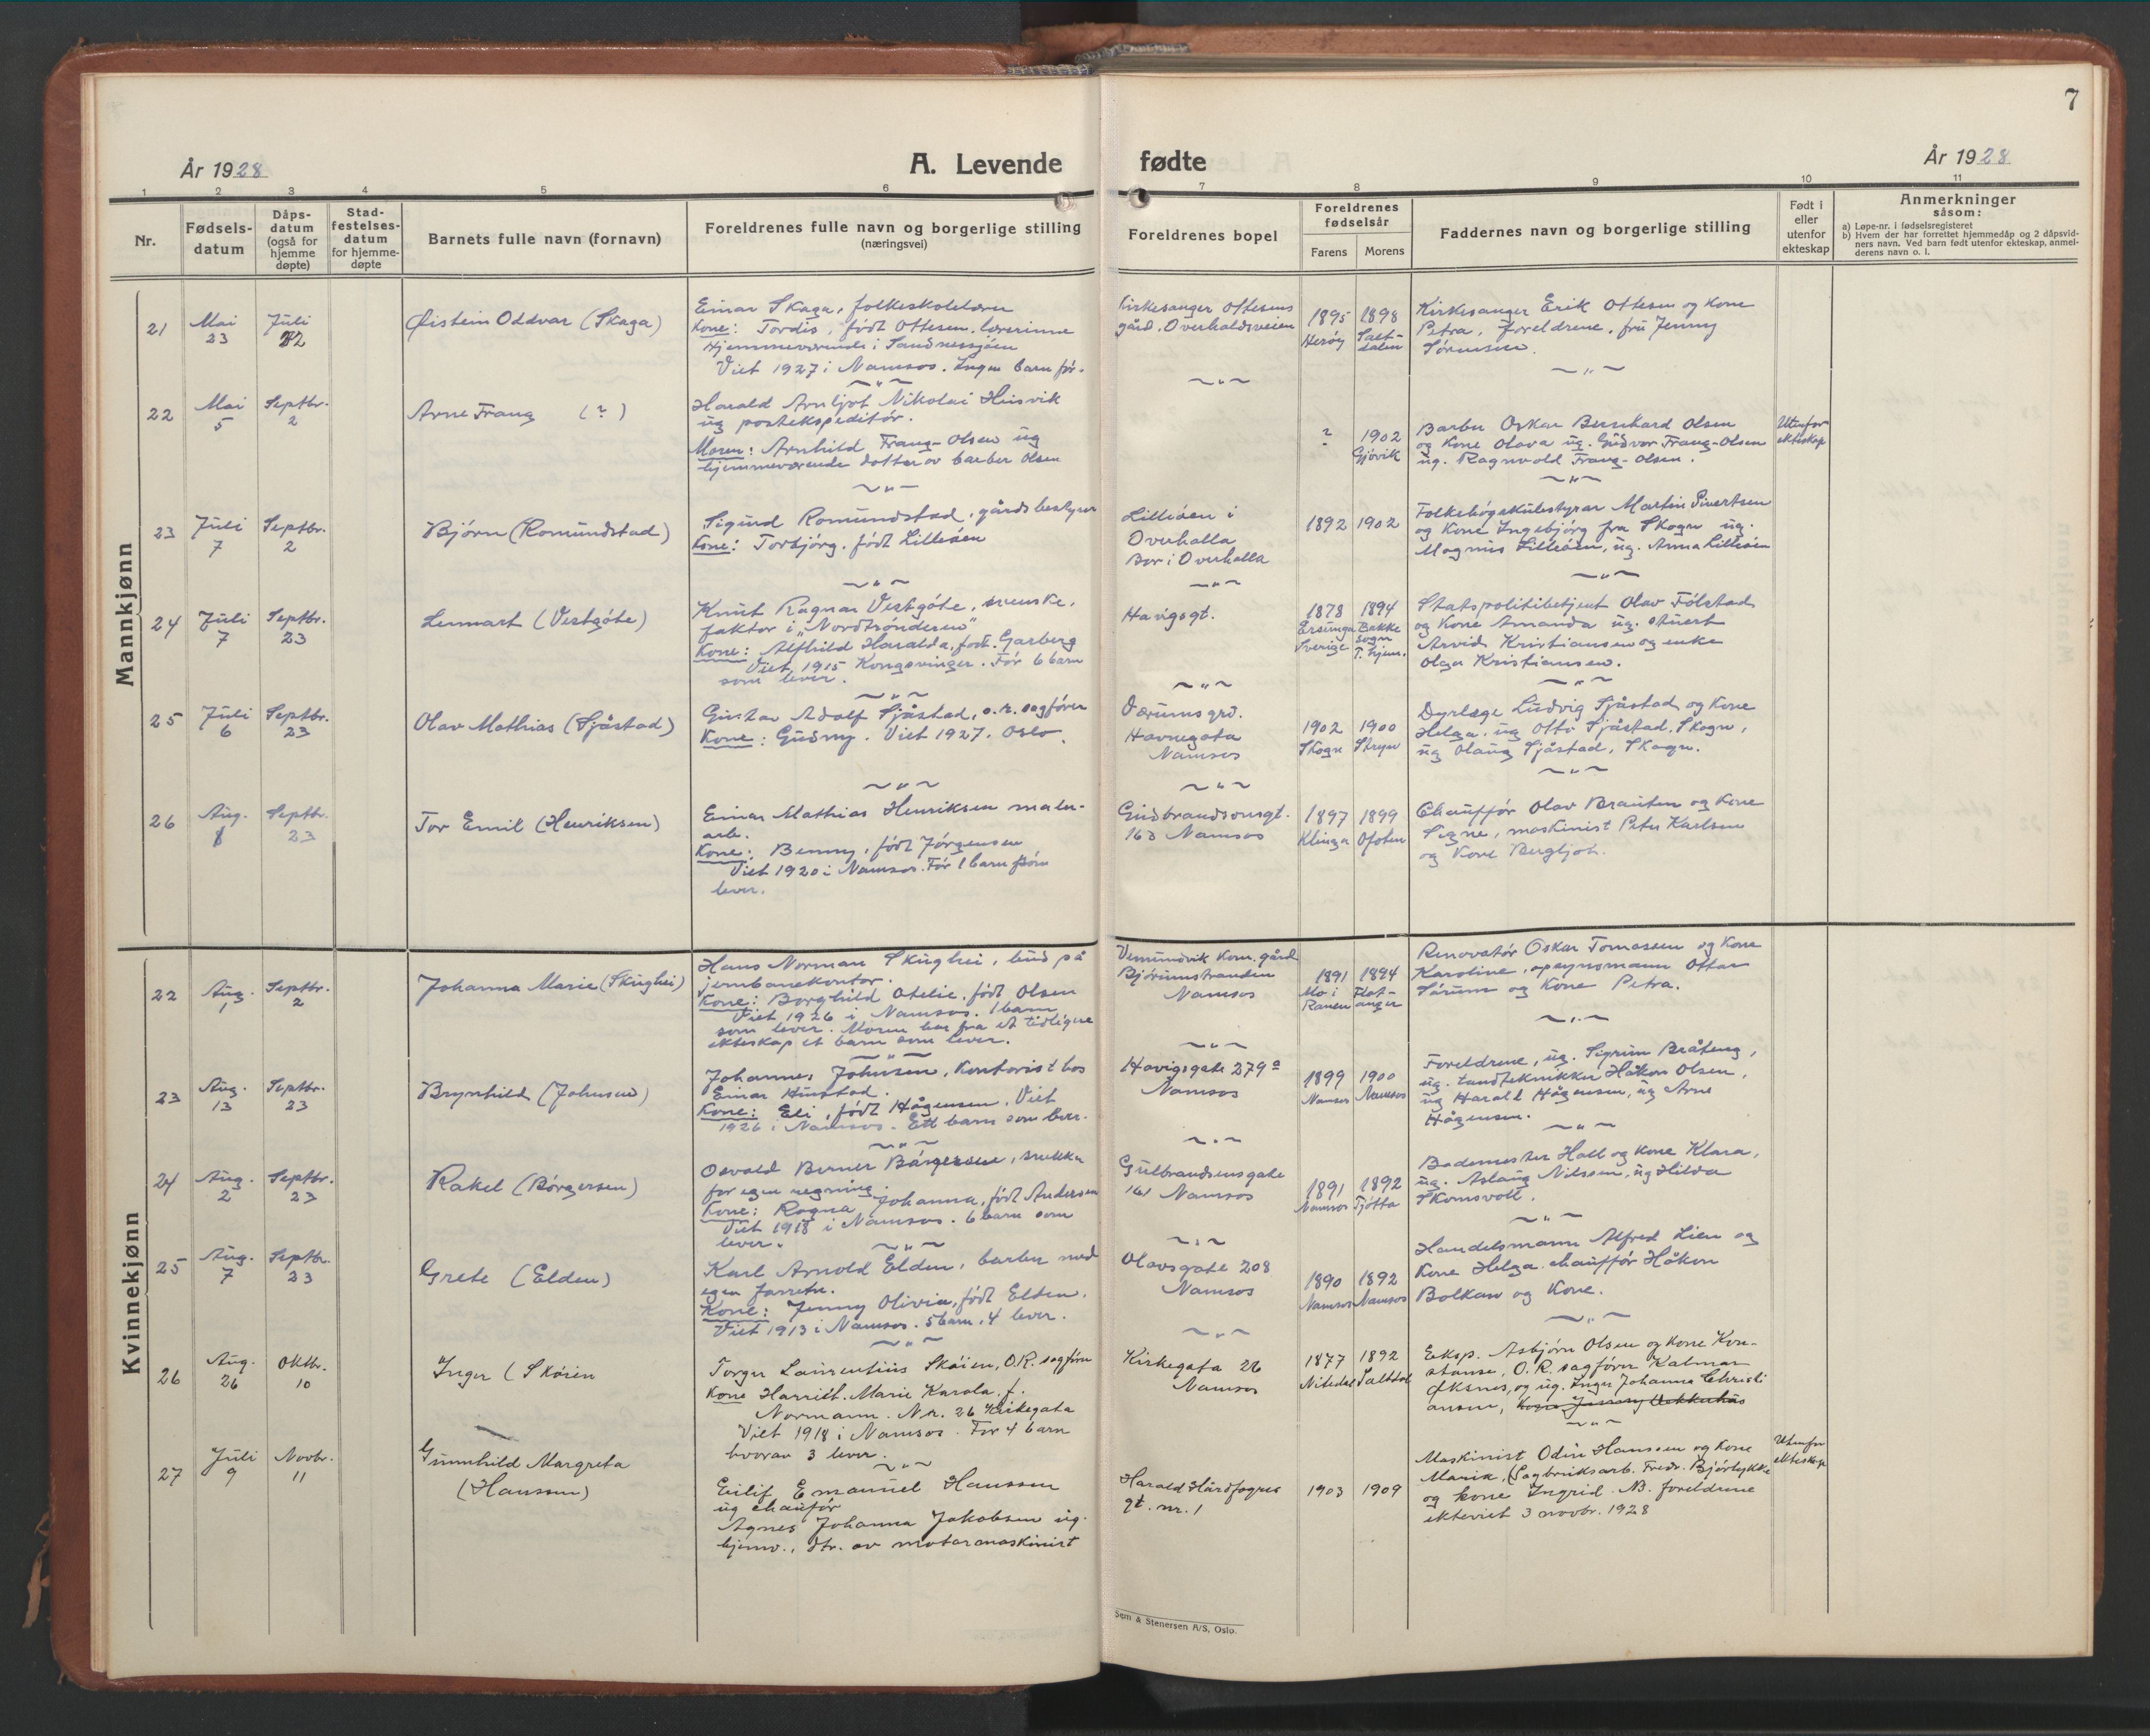 7
År 1928
A. Levende fødte
År 1928
1 2 3 4 5 6 7 8 9 10 11
Nr.
Fødsels-
datum
Dåps-
datum
(også for
hjemme
døpte)
Stad-
festelses-
datum
for hjemme-
døpte
Barnets fulle navn (fornavn)
Foreldrenes fulle navn og borgerlige stilling
(næringsvei)
Foreldrenes bopel
Foreldrenes
fødselsår
Farens Morens
Faddernes navn og borgerlige stilling
Født i
eller
utenfor
ekteskap
Anmerkninger
såsom:
a) Løpe-nr. i fødselsregisteret
b) Hvem der har forrettet hjemmedåp og 2 dåpsvid-
ners navn. Ved barn født utenfor ekteskap, anmel-
derens navn o. l.
Mannkjønn
21
Mai
23
Juli
22
Øistein Oddvar (Skaga)
Einar Skaga, folkeskolelærer
Kone: Tordis, født Ottesen. lærerinne
Hjemmeværende i Sandnessjøen
Viet 1927 i Namsos. Ingen barn før.
Kirkesanger Ottesens
gård, Overhaldsveien
1895
Herøy
1898
Salt-
dalen
Kirkesanger Erik Ottesen og kone
Petra, foreldrene, fru Jenny
Sørensen.
22
Mai
5
Septbr.
2
Arne Frang (?)
Harald Arnljot Nikolai Husvik
ug postekspeditør.
Moren: Arnhild Frang-Olsen ug
hjemmeværende datter av barber Olsen
?
1902
Gjøvik
Barber Oskar Bernhard Olsen
og kone Olava ug. Gudvor Frang-Olsen
ug. Ragnvald Frang-Olsen.
Utenfor
ekteskap
23
Juli
7
Septbr.
2
Bjørn (Romundstad)
Sigurd Romundstad, gårdsbestyrer
Kone: Torbjørg. født Lilleøen
Lilleøen i
Overhalla
Bor i Overhalla
1892 1902
Folkehøgskulestyrar Martin Sivertsen
og kone Ingebjørg fra Skogn ug.
Magnus Lilleøen, ug. Anna Lilleøen
24
Juli
7
Septbr.
23
Lennart (Vestgöte)
Knut Ragnar Vestgöte, svenske,
faktor i "Nordtrønderen"
Kone: Alfhild Haralda, født Garberg
Viet 1915 Kongsvinger. Før 6 barn
som lever.
Havigsgt.
1878
Sverige
1894
Bakke
sogn
T. hjem.
Statspolitibetjent Olav Følstad
og kone Amanda ug. stuert
Arvid Kristiansen og enke
Olga Kristiansen.
25
Juli
6
Septbr.
23
Olav Mathias (Sjåstad)
Gustav Adolf Sjåstad, o.r. sagfører
Kone: Gudny. Viet 1927. Oslo.
Værumsgrd.
Havnegata
Namsos
1902
Skogn
1900
Stryn
Dyrlæge Ludvig Sjåstad og kone
Helga, ug Otto Sjåstad, Skogn,
ug Olaug Sjåstad, Skogn.
26
Aug.
8
Septbr.
23
Tor Emil (Henriksen)
Einar Mathias Henriksen maler-
arb.
Kone: Benny, født Jørgensen
Viet 1920 i Namsos. Før 1 barn som
lever.
Gudbrandsonsgt.
163 Namsos
1897
Klinga
1899
Ofoten
Chauffør Olav Brauten og kone
Signe, maskinist Peter Karlsen
og kone Bergljot.
Kvinnekjønn
22
Aug.
1
Septbr.
2
Johanna Marie (Skughei)
Hans Norman Skughei, bud på
jernbanekontor.
Kone: Borghild Otelie, født Olsen
Viet 1926 i Namsos. 1 barn
som lever. Moren har fra et tidligere
ekteskap et barn som lever.
Vemundvik Kom. gård
Bjørumstranden
Namsos
1891
Mo i
Ranen
1894
Flat-
anger
Renovatør Oskar Tomassen og kone
Karoline, opsynsmann Ottar
Sørum og kone Petra.
23
Aug.
13
Septbr.
23
Brynhild (Johnsen)
Johannes Johnsen, kontorist hos
Einar Hustad.
Kone: Eli, født Hågensen. Viet
1926 i Namsos. Ett barn som lever.
Havigsgate 279a
Namsos
1899
Namsos
1900
Namsos
Foreldrene, ug. Sigrun Bråteng,
ug. tandtekniker Håkon Olsen,
ug Harald Hågensen, ug Arne
Hågensen.
24
Aug.
2
Septbr.
23
Rakel (Børgersen)
Osvald Berner Børgersen, snekker
for egen regning.
Kone: Ragna Johanna, født Andersen
Viet 1918 i Namsos. 6 barn som
lever.
Gulbrandsensgate
161 Namsos
1891
Namsos
1892
Tjøtta
Bademester Hall og kone Klara,
ug. Aslaug Nilssen, ug Hilda
Skomsvoll.
25
Aug.
7
Septbr.
23
Grete (Elden)
Karl Arnold Elden, barber med
egen forretn.
Kone: Jenny Olivia, født Elden.
Viet 1913 i Namsos. 5 barn, 4 lever.
Olavsgate 208
Namsos
1890
Namsos
1892
Namsos
Handelsmann Alfred Lien og
kone Helga, chauffør Håkon
Bolkan og kone.
26
Aug.
26
Oktbr.
10
Inger (Skøien
Torger Laurentius Skøien, O.R. sagfører
Kone Harriet. Marie Karola, f.
Normann. Nr. 26 Kirkegata
Viet 1918 i Namsos. Før 4 barn
hvorav 3 lever.
Kirkegata 26
Namsos
1877
Nitedal
1892
Saltdal
Eksp. Asbjørn Olsen og kone Kon-
stanse, O.R. sagfører Kalman
Øksnes, og ug. Inger Johanna Christi
ansen,
27
Juli
9
Novbr.
11
Gunnhild Margreta
(Hanssen)
Eilif Emanuel Hanssen
ug chauffør
Agnes Johanna Jakobsen ug.
hjemv., dtr. av motormaskinist
Harald Hårdfagres
gt. nr. 1
1903 1909
Maskinist Odin Hanssen og kone
Marie, (Sagbruksarb. Fredr. Bjørlykke
og kone Ingrid. NB. foreldrene
ekteviet 3 novbr. 1928
Utenfor
ekteskap
Sem & Stenersen A/S, Oslo.